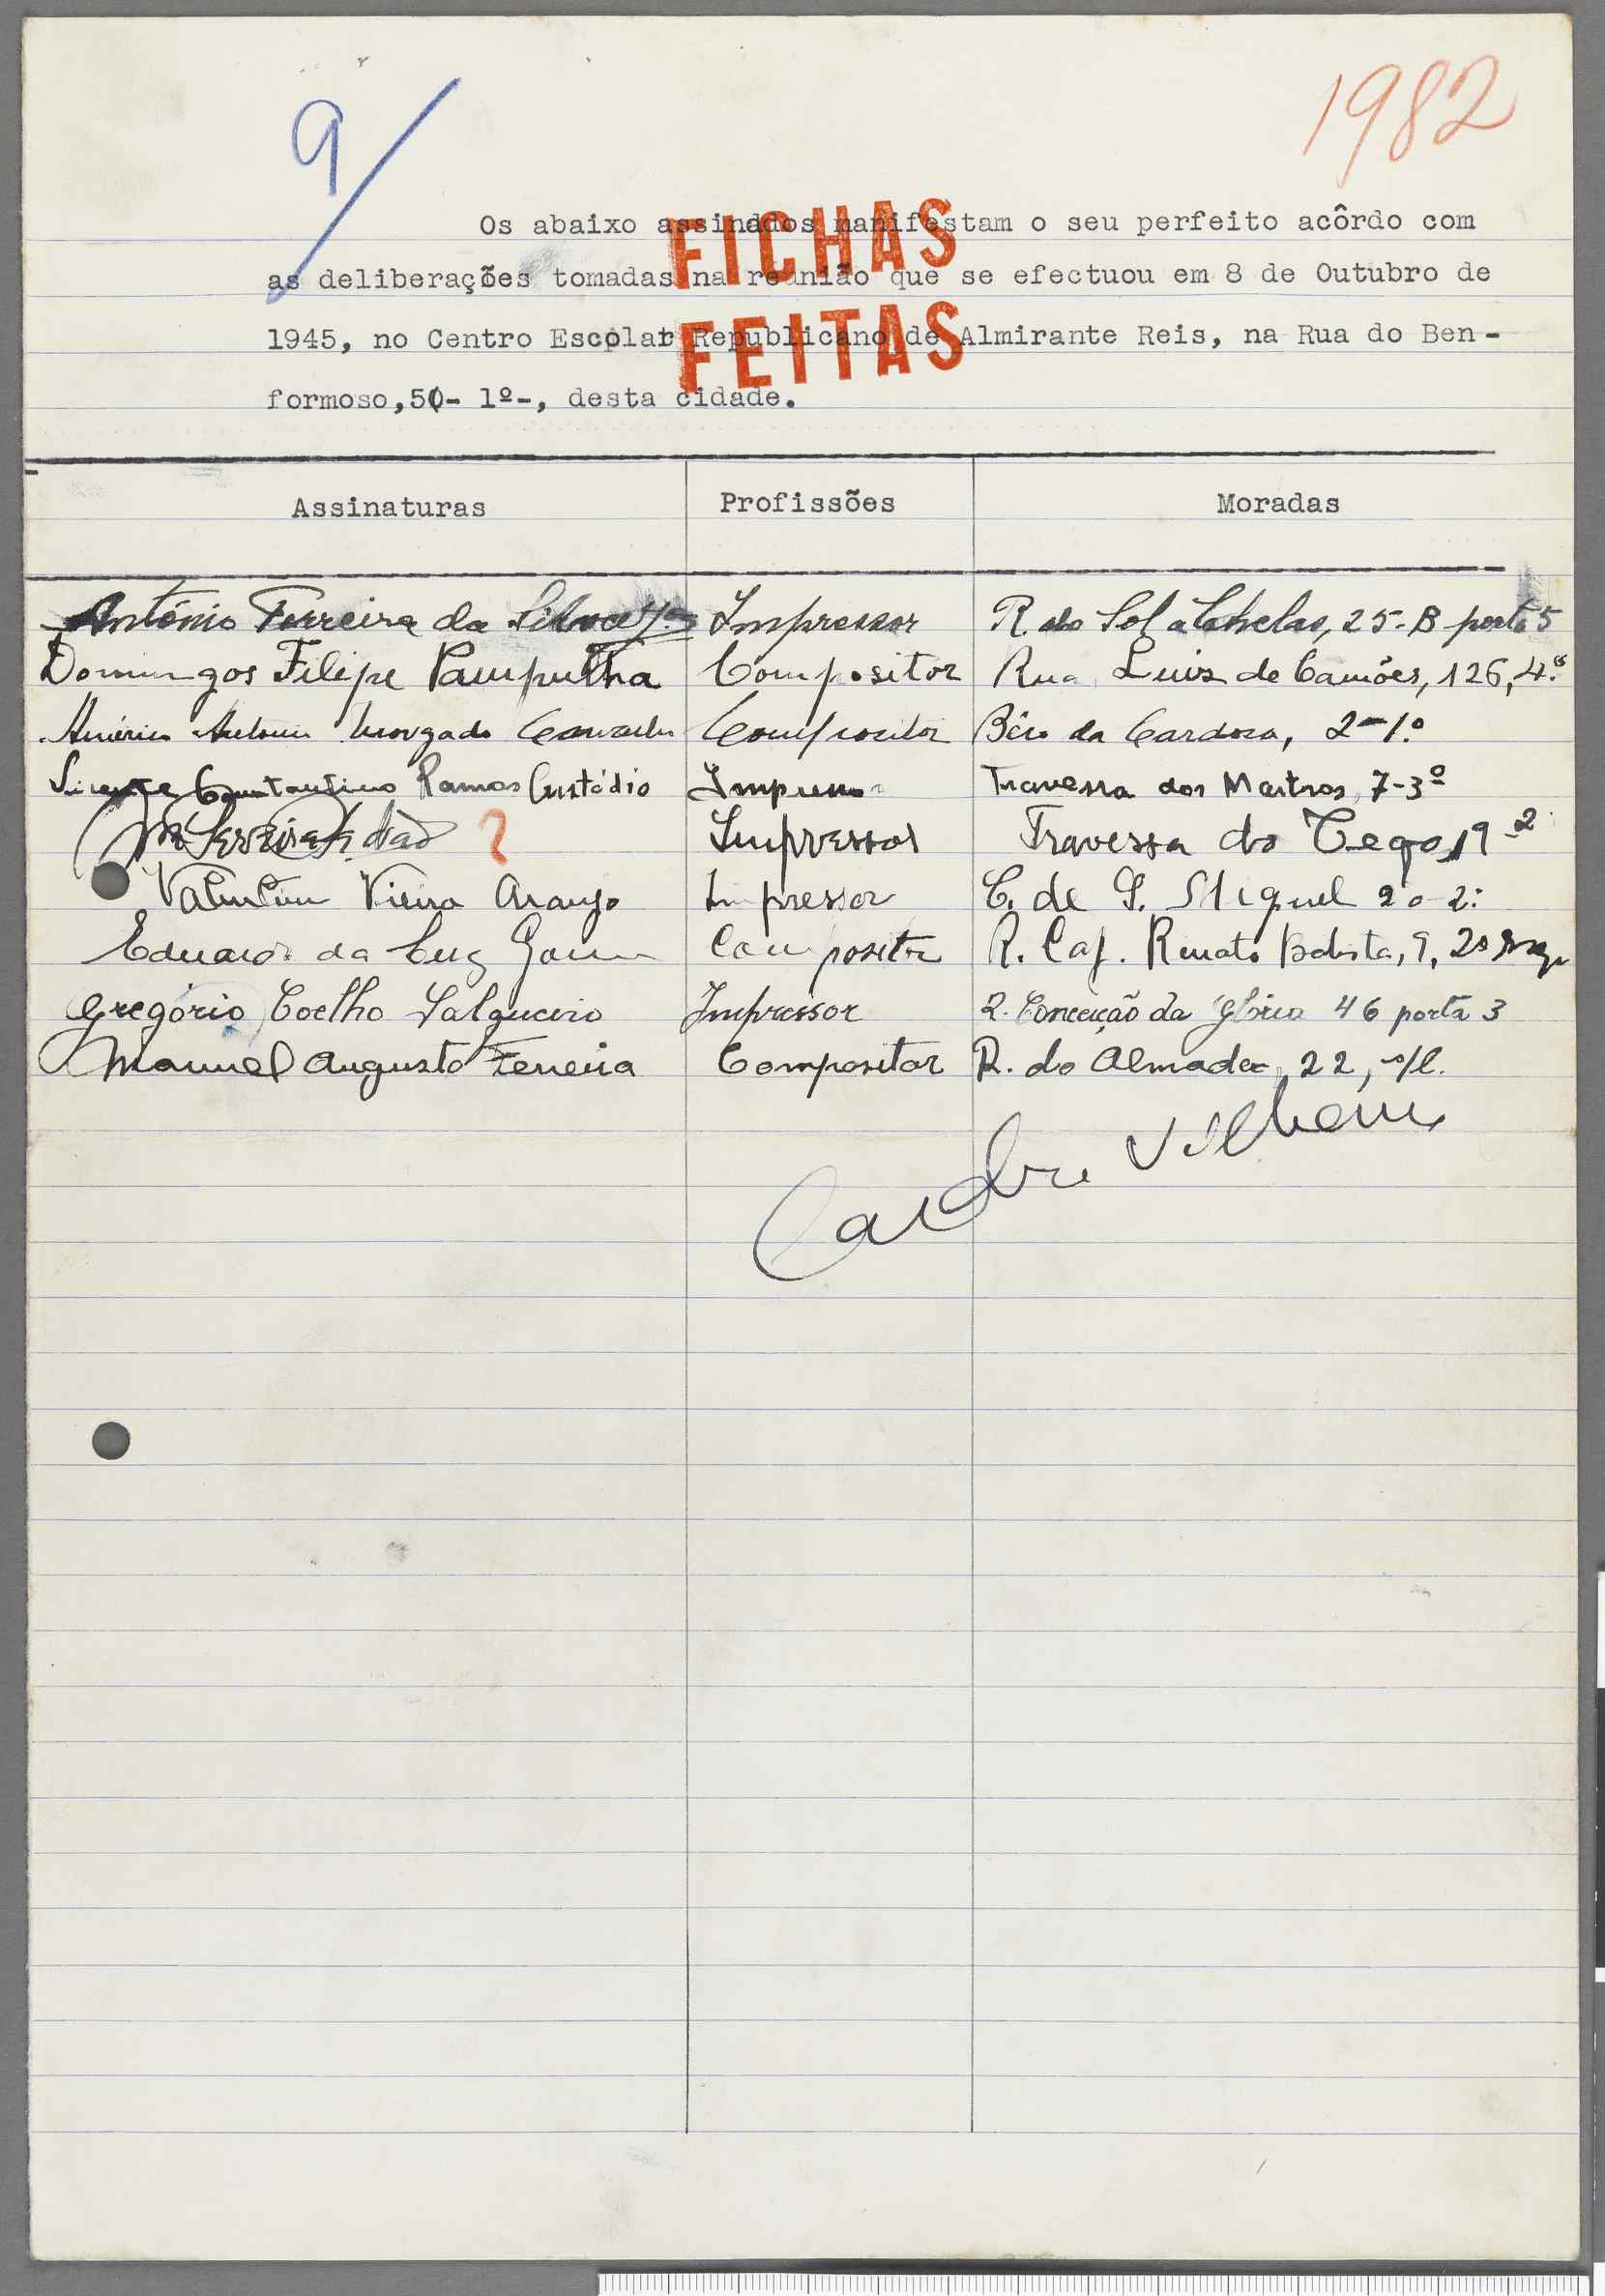 9/
1982
FICHAS
FEITAS
Os abaixo assinados manifestam o seu perfeito acôrdo com
as deliberações tomadas na reunião que se efectuou em 8 de Outubro de
1945, no Centro Escolar Republicano de Almirante Reis, na Rua do Ben-
formoso,50- 1º-, desta cidade.
Assinaturas Profissões Moradas
António Ferreira da Silva Impressor R. do Sol a Chelas, 25-B porta 5
Domingos Filipe Pampulha Compositor Rua Luis de Camões, 126, 4.º
Américo António Morgado Compositor Bêco da Cardosa, 2-1.º
Vicente Constantino Ramos Custódio Impressor Travessa dos Mastros, 7-3º
? Impressor Travessa do Cego, 19 2
Valentim Vieira Araujo Impressor C. de S. Miguel 20-2º
Eduardo da Cruz Compositor R. Cap. Renato Batista, 9, 2º
Gregório Coelho Salgueiro Impressor R. Conceição da Glória 46 porta 3
Manuel Augusto Ferreira Compositor R. do Almada, 22, s/l.